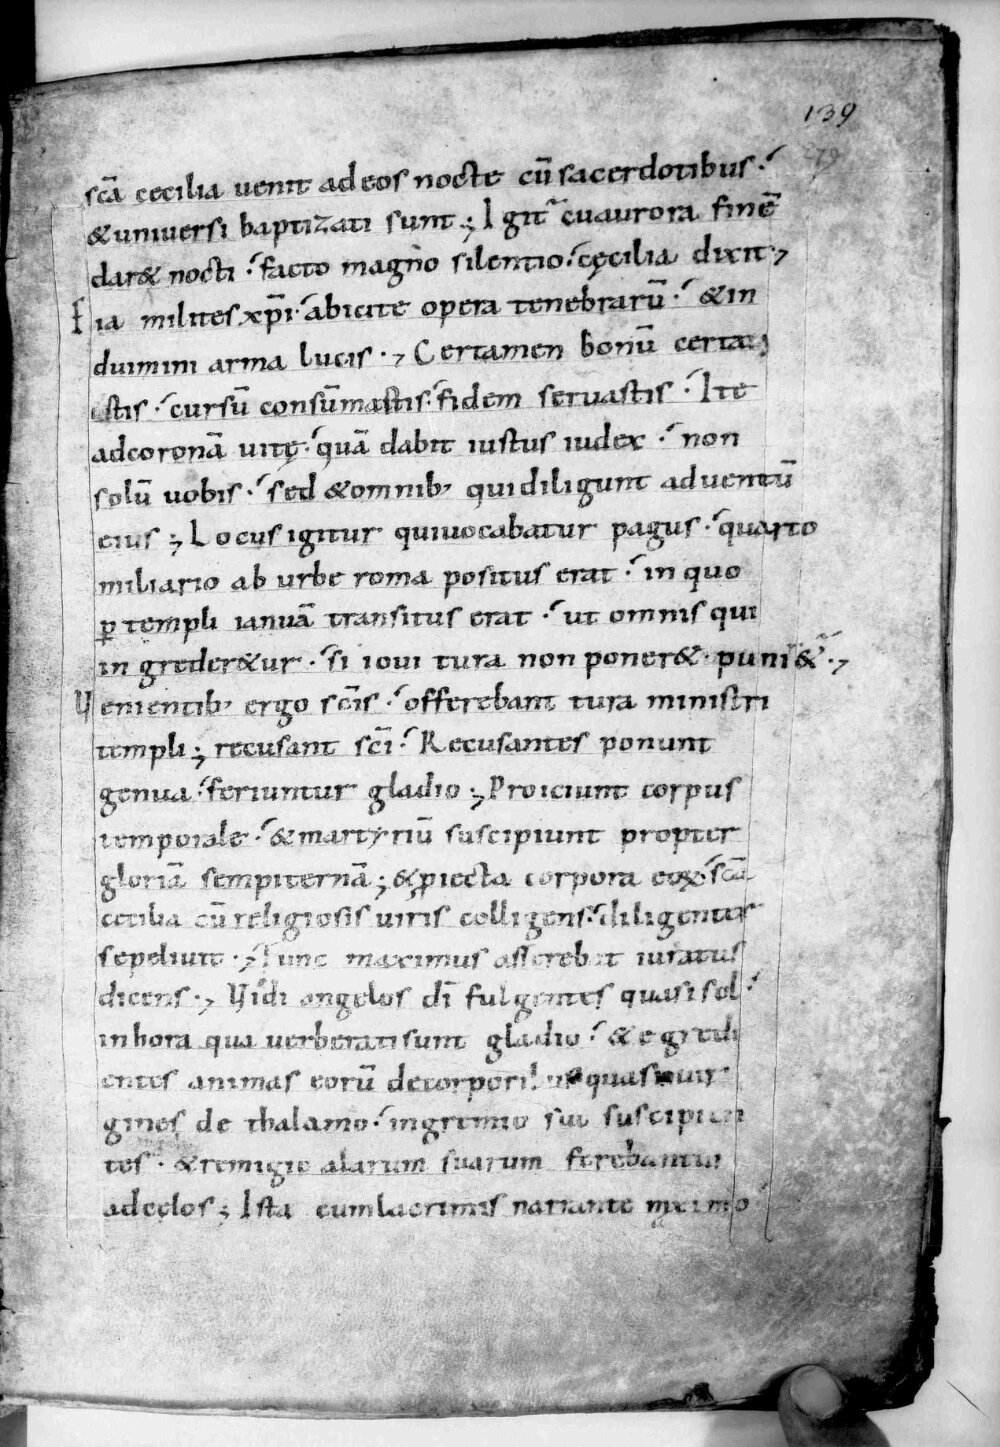 139
279
sc̄a cecilia uenit ad eos nocte cū sacerdotibus.
& uniuersi baptizati sunt; Igit᷑ cū aurora finē
dar& nocti. facto magno silentio. cęcilia dixit.,
Eia milites xp̄i. abicite opera tenebrarū. & in
duimini arma lucis., Certamen bonū certati
estis. cursū consūmastis. fidem seruastis. Ite
ad coronā uitę. quā dabit iustus iudex. non
solū uobis. sed & omnib, qui diligunt aduentū
eius; Locus igitur qui uocabatur pagus. quarto
miliario ab urbe roma positus erat. in quo
ꝑ templi ianuā transitus erat. ut omnis qui
ingreder&ur. si ioui tura non poner&. puni&᷑.,
Uenientib, ergo sc̄is. offerebant tura ministri
templi; recusant sc̄i. Recusantes ponunt
genua. feriuntur gladio; Proiciunt corpus
temporale. & martyriū suscipiunt propter
gloriā sempiternā; & ꝓiecta corpora eoꝝ. sc̄a
cecilia cū religiosis uiris colligens. diligenter
sepeliuit., Tunc maximus asserebat iuratus
dicens., Uidi angelos dī fulgentes quasi sol.
in hora qua uerberati sunt gladio. & egredi
entes animas eorū de corporibus quasi uir
gines de thalamo. in gremio suo suscipien
tes. & remigio alarum suarum ferebantur
ad cęlos; Ista cum lacrimis narrante maximo